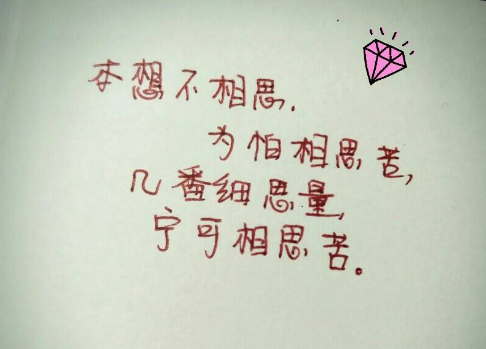 本想不相思.
为怕相思苦,
几番细思量,
宁可相思苦。